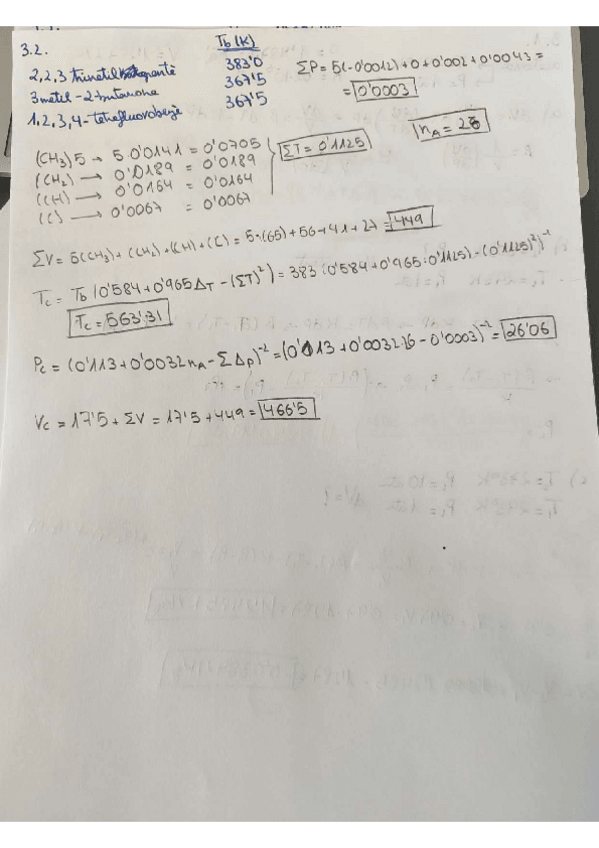 3.2.
Tb (K)
2,2,3 trimetil pentante 383'0
3 metil-2-butanona 367'5
1,2,3,4-tetrafluorobenze 367'5
ΣP = 5(-0'0012)+0+0'002+0'0043 =
= 0'0003
nA = 26
(CH3) 5 → 5.0'0141 = 0'0705
(CH2) → 0'0189 = 0'0189
(CH) → 0'0164 = 0'0164
(C) → 0'0067 = 0'0067
ΣT = 0'1125
ΣV = 5(CH3)+(CH2)+(CH)+(C) = 5·(65)+56+41+27 = 449
Tc = Tb (0'584+0'965ΔT-(ΣT)²) = 383 (0'584+0'965·0'1125)-(0'1125)²)⁻¹
Tc = 563'31
Pc = (0'113+0'0032nA-ΣΔp)⁻² = (0'113+0'0032·26-0'0003)⁻² = 26'06
Vc = 17'5+ΣV = 17'5+449 = 466'5